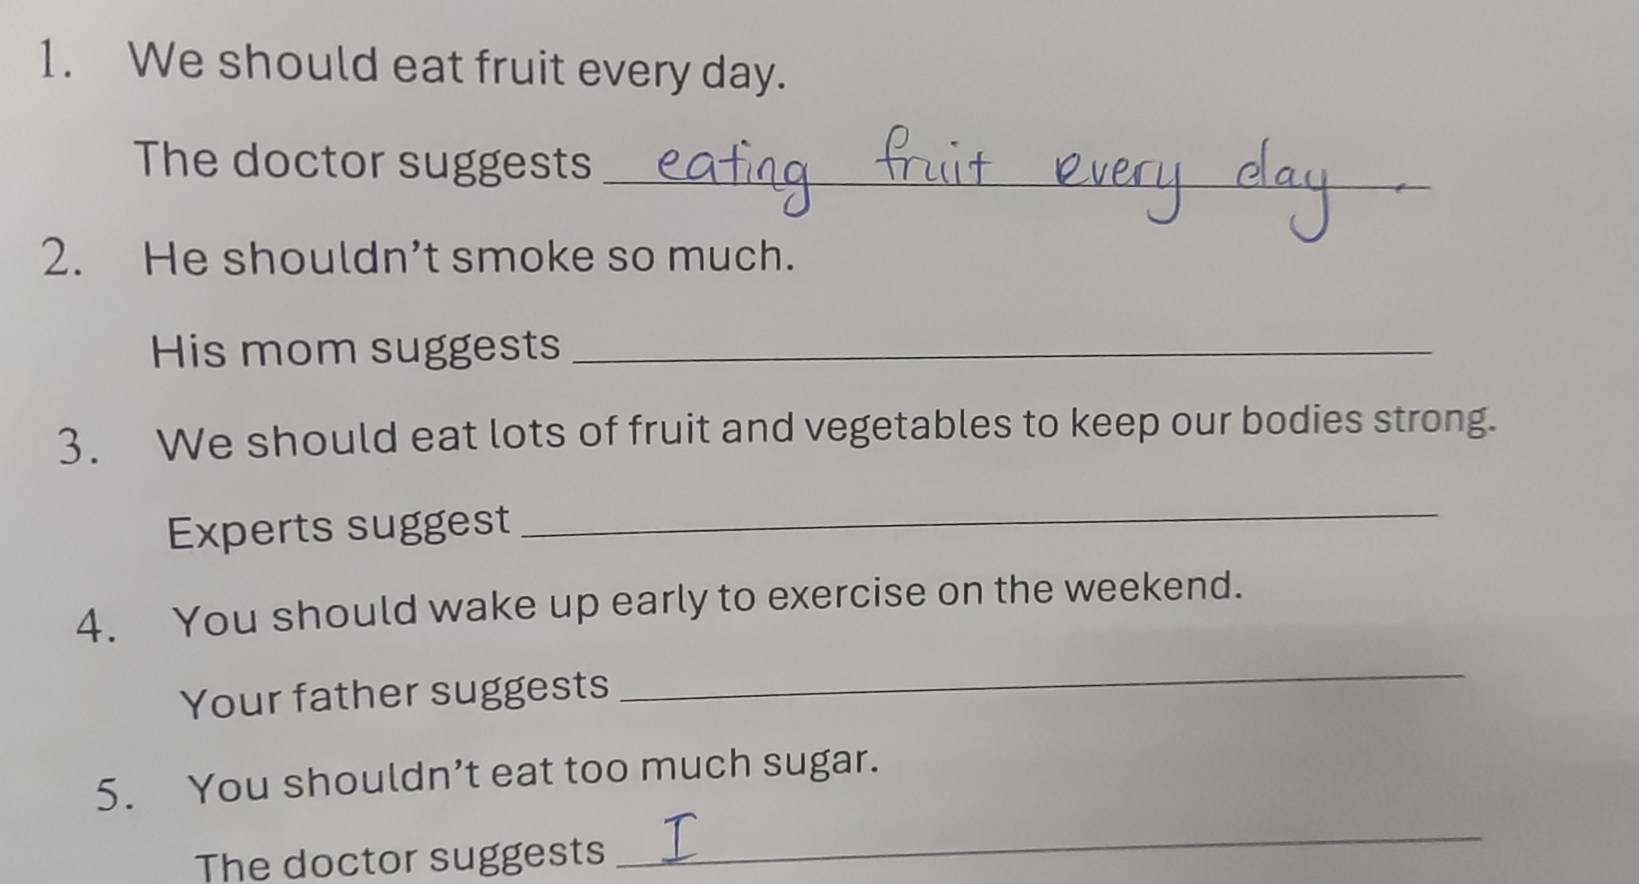 1. We should eat fruit every day.
The doctor suggests eating fruit every day.
2. He shouldn't smoke so much.
His mom suggests
3. We should eat lots of fruit and vegetables to keep our bodies strong.
Experts suggest
4. You should wake up early to exercise on the weekend.
Your father suggests
5. You shouldn't eat too much sugar.
The doctor suggests I